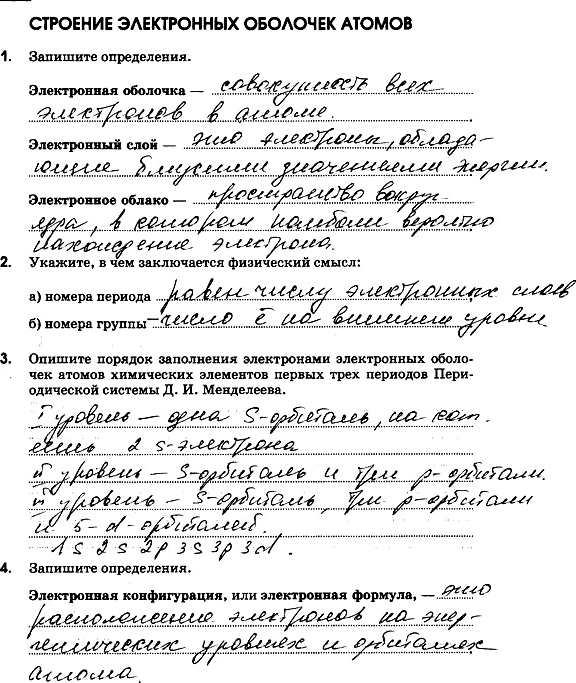 СТРОЕНИЕ ЭЛЕКТРОННЫХ ОБОЛОЧЕК АТОМОВ
1. Запишите определения.
Электронная оболочка — совокупность всех
электронов в атоме.
Электронный слой — это электроны, облада-
ющие близкими значениями энергии.
Электронное облако — пространство вокруг
ядра, в котором наиболее вероятно
нахождение электрона.
2. Укажите, в чем заключается физический смысл:
а) номера периода равен числу электронных слоев
б) номера группы – число ē на внешнем уровне
3. Опишите порядок заполнения электронами электронных оболо-
чек атомов химических элементов первых трех периодов Пери-
одической системы Д. И. Менделеева.
I уровень – одна S-орбиталь, на кот.
лишь 2 s-электрона
II уровень – S-орбиталь и три p-орбитали.
III уровень – S-орбиталь, три p-орбитали
и 5-d-орбиталей.
1s 2s 2p 3s 3p 3d.
4. Запишите определения.
Электронная конфигурация, или электронная формула, — это
расположение электронов на энер-
гетических уровнях и орбиталях
атома.